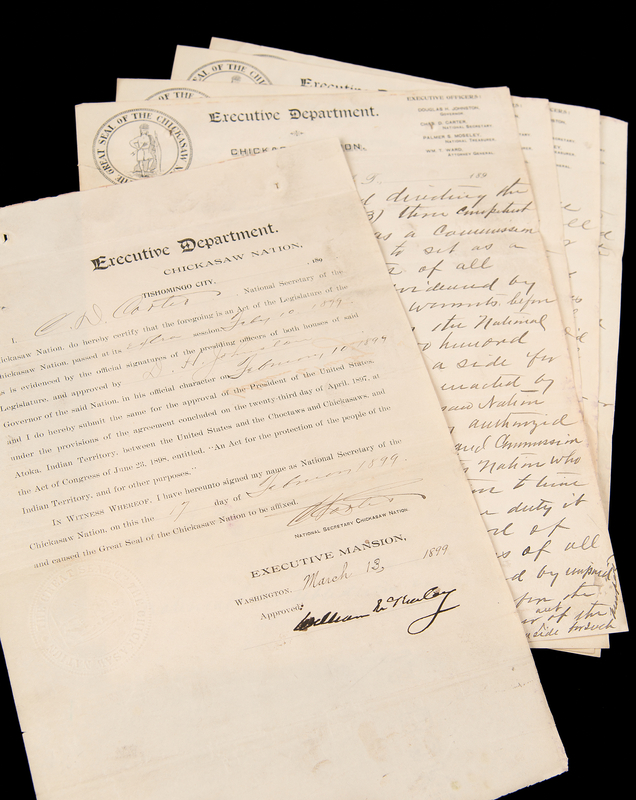 Executive Department.
CHICKASAW NATION,
TISHOMINGO CITY, 189
I, C. D. Carter, National Secretary of the
Chickasaw Nation, do hereby certify that the foregoing is an Act of the Legislature of the
Chickasaw Nation, passed at its extra session, 1899
as is evidenced by the official signatures of the presiding officers of both houses of said
Legislature, and approved by D. H. Johnston
Governor of the said Nation, in his official character on February 10 1899
and I do hereby submit the same for the approval of the President of the United States,
under the provisions of the agreement concluded on the twenty-third day of April, 1897, at
Atoka, Indian Territory, between the United States and the Choctaws and Chickasaws, and
the Act of Congress of June 23, 1898, entitled, "An Act for the protection of the people of the
Indian Territory, and for other purposes."
IN WITNESS WHEREOF, I have hereunto signed my name as National Secretary of the
Chickasaw Nation, on this the 17 day of February 1899.
and caused the Great Seal of the Chickasaw Nation to be affixed.
C D Carter
NATIONAL SECRETARY CHICKASAW NATION
EXECUTIVE MANSION,
WASHINGTON, March 13, 1899
Approved:
William McKinley
THE GREAT SEAL OF THE CHICKASAW
Executive Department.
CHICKAS ION,
EXECUTIVE OFFICERS:
DOUGLAS H. JOHNSTON,
GOVERNOR
CHAS. D. CARTER,
NATIONAL SECRETARY
PALMER S. MOSELEY,
NATIONAL TREASURER
WM. T. WARD,
ATTORNEY GENERAL
189
directing the
3) three competent
as a Commission
to set as a
of all
evidenced by
warrants begin
the National
hundred
a side for
enacted by
Nation
authorized
and Commission
Nation who
to time
duty it
of
of all
by unpaid
the
of the
aside for such